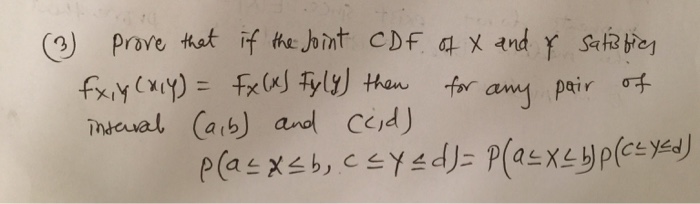 (3) Prove that if the Joint CDF of X and Y Satisfies
Fx,y(x,y) = Fx(x) Fy(y) then for any pair of
interval (a,b) and (c,d)
P(a≤X≤b, c≤Y≤d) = P(a≤X≤b)p(c≤y≤d)